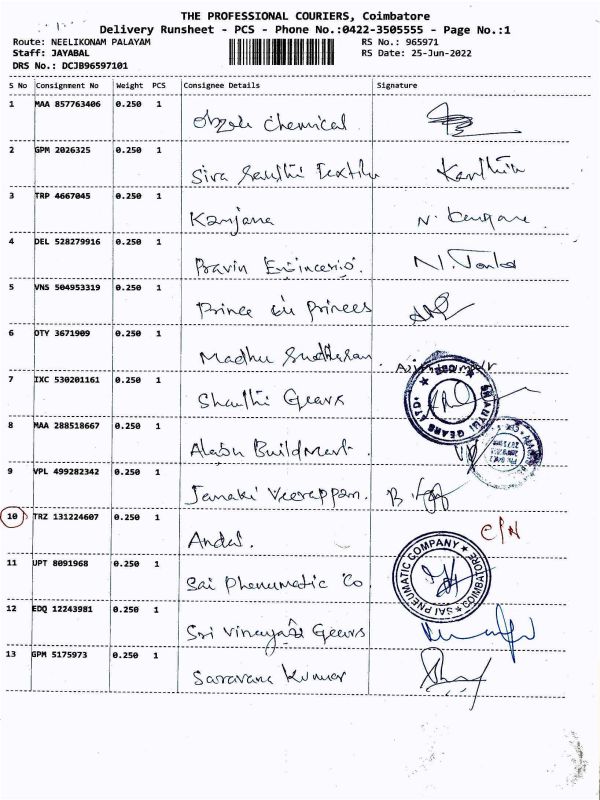 THE PROFESSIONAL COURIERS, Coimbatore
Delivery Runsheet - PCS - Phone No.:0422-3505555 - Page No.:1
Route: NEELIKONAM PALAYAM RS No.: 965971
Staff: JAYABAL RS Date: 25-Jun-2022
DRS No.: DCJB96597101
S No Consignment No Weight PCS Consignee Details Signature
1 MAA 857763406 0.250 1 Chemical
2 GPM 2026325 0.250 1 Siva Sakthi Textile
3 TRP 4667045 0.250 1 Kanjana N.
4 DEL 528279916 0.250 1 Pravin N.
5 VNS 504953319 0.250 1 Prince Princess
6 OTY 3671909 0.250 1 Madhu
7 IXC 530201161 0.250 1 Shanthi Gears
SHANTHI GEARS LTD
8 MAA 288518667 0.250 1 Buildmart
9 VPL 499282342 0.250 1 Janaki Veerappan. B.
10 TRZ 131224607 0.250 1 Andal. C/N
11 UPT 8091968 0.250 1 Sai Phenumatic Co.
SAI PNEUMATIC COMPANY COIMBATORE
12 EDQ 12243981 0.250 1 Sri Vinayaga Gears
13 GPM 5175973 0.250 1 Saravana Kumar